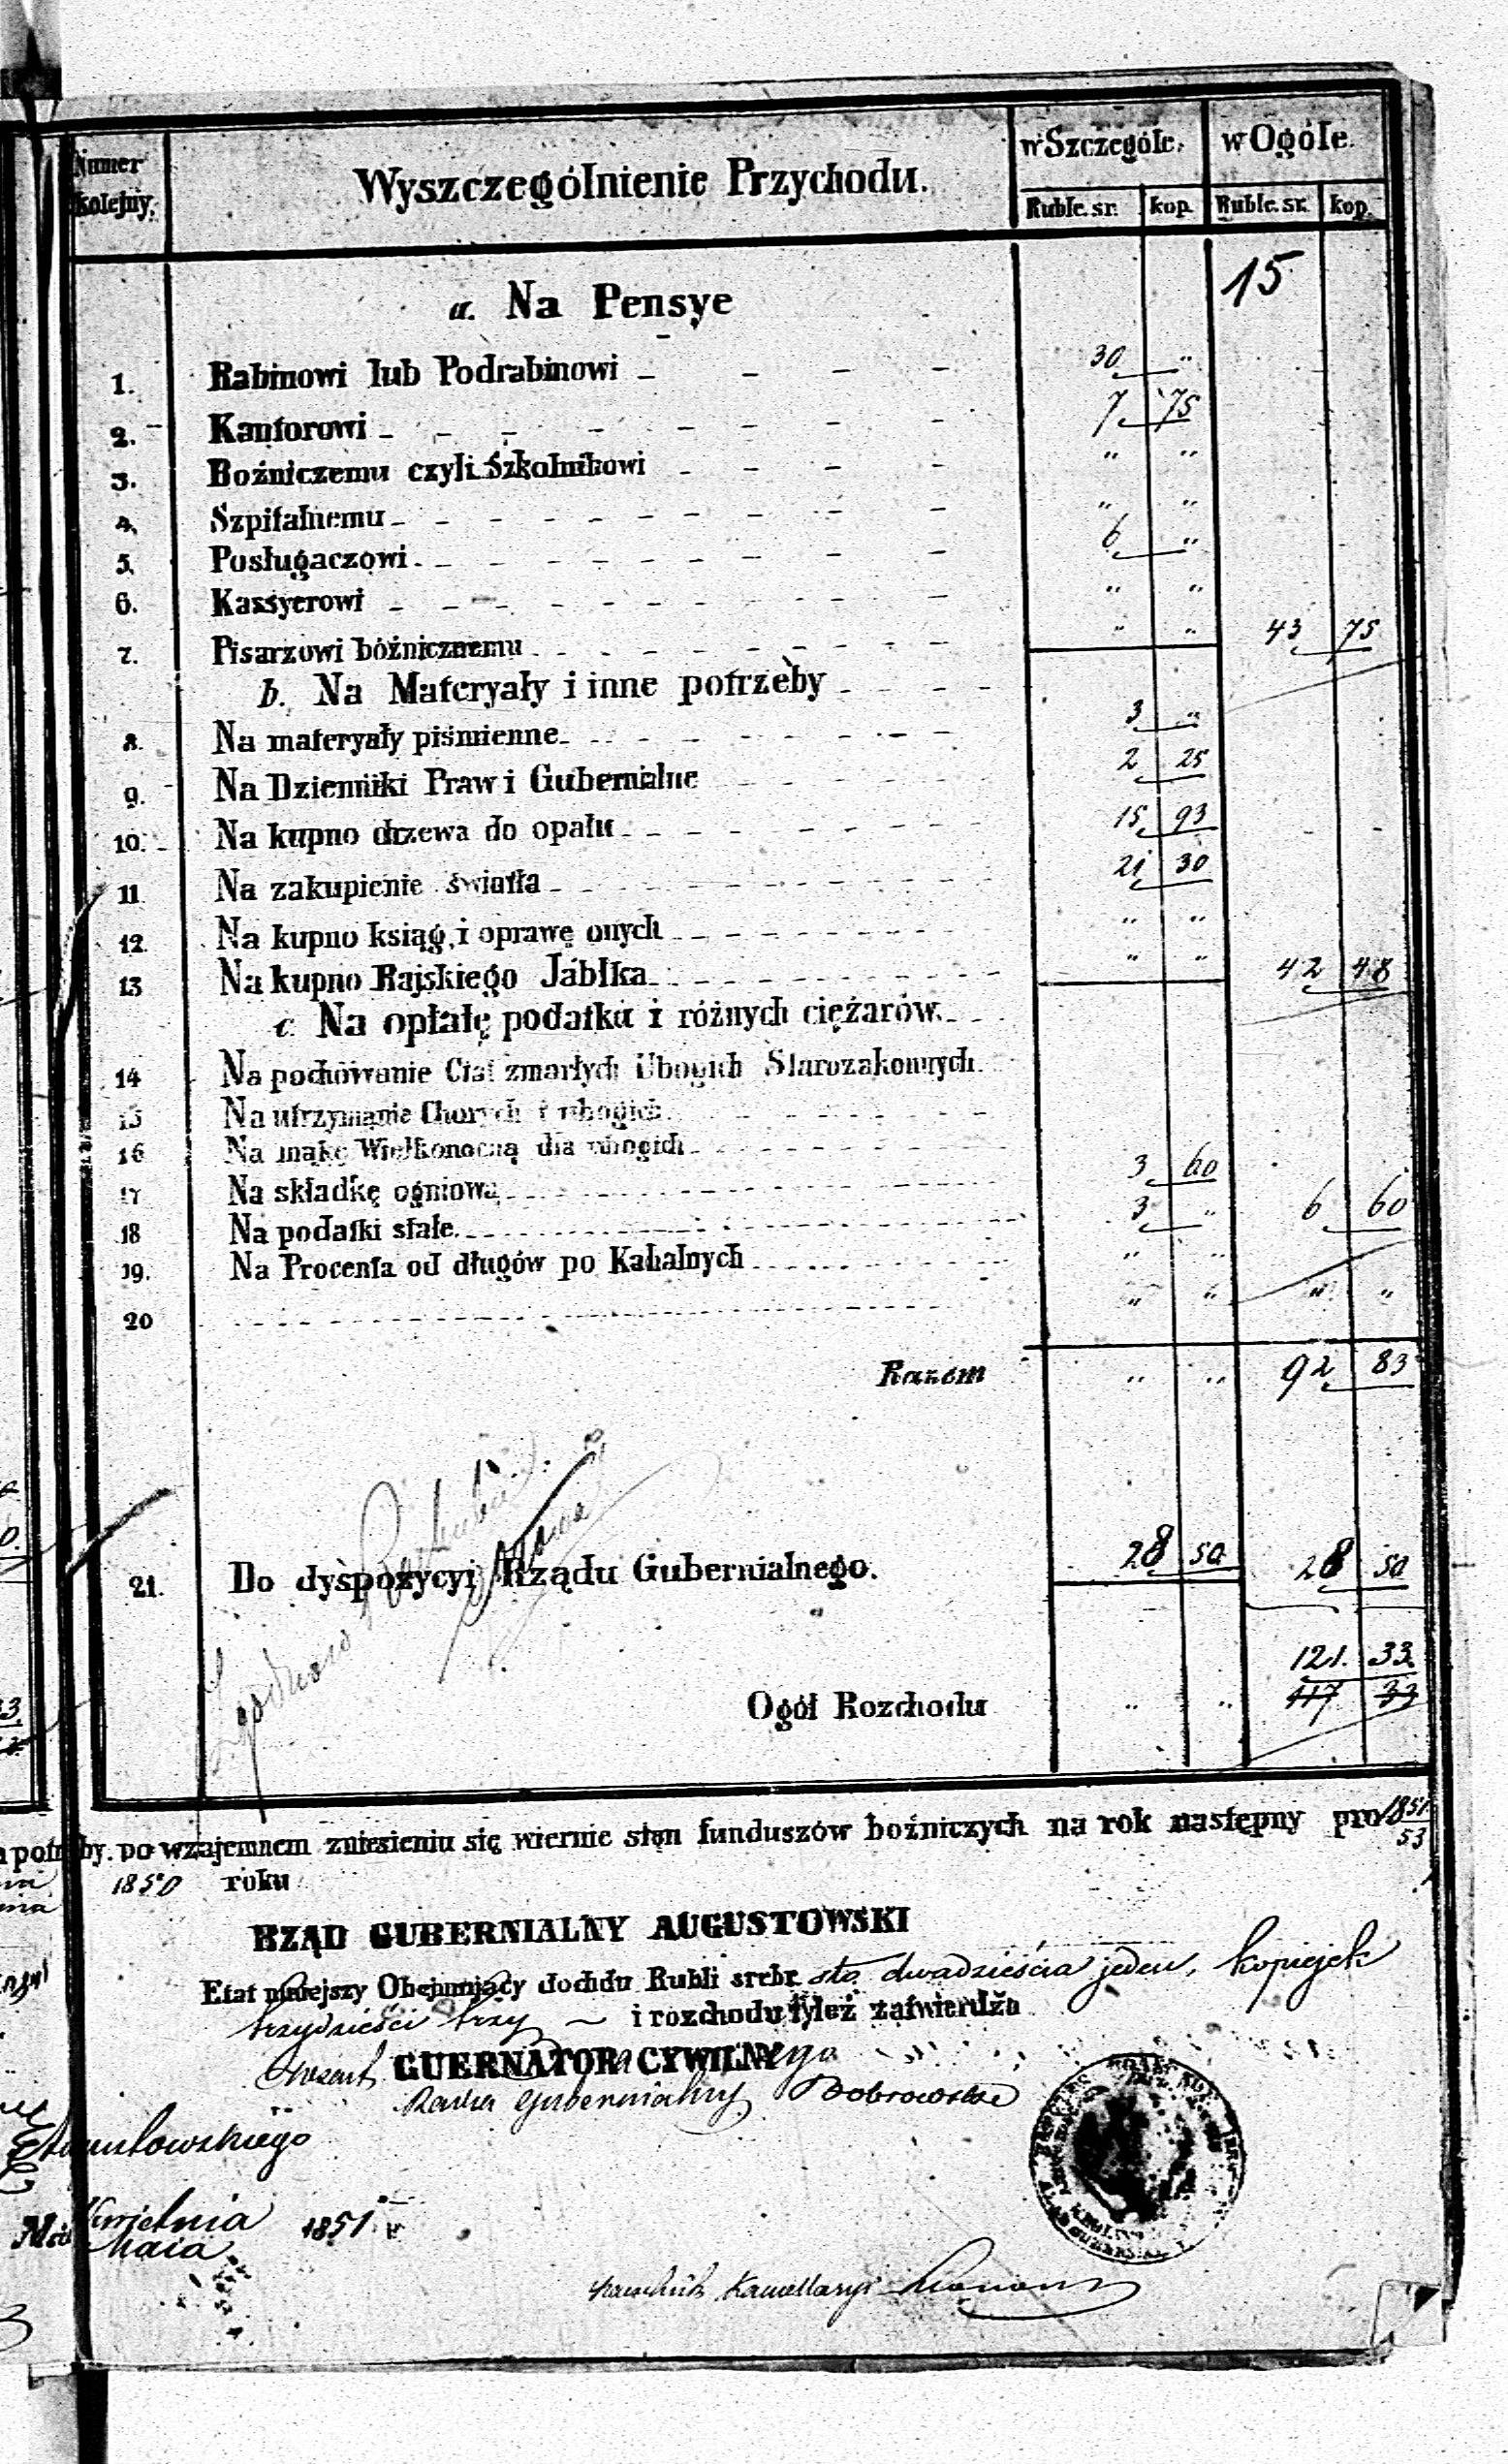 Numer kolejny. Wyszczególnienie Przychodu. w Szczególe. w Ogóle.
Ruble. sr. kop. Ruble. sr. kop.
15
a. Na Pensye
1. Rabinowi lub Podrabinowi 30 "
2. Kantorowi 7 75
3. Boźniczemu czyli Szkolnikowi " "
4. Szpitalnemu " "
5. Posługaczowi 6 "
6. Kassyerowi " "
7. Pisarzowi bóźnicznemu " " 43 75
b. Na Materyały i inne potrzeby
8. Na materyały piśmienne 3 "
9. Na Dzienniki Praw i Gubernialne 2 25
10. Na kupno drzewa do opału 15 93
11 Na zakupienie światła 21 30
12. Na kupno ksiąg, i oprawę onych " "
13 Na kupno Rajskiego Jabłka " " 42 48
c. Na opłatę podatku i różnych ciężarów.
14 Na pochowanie Ciał zmarłych Ubogich Starozakonnych.
15 Na utrzymanie Chorych i ubogich
16 Na mąkę Wielkonocną dla ubogich
17 Na składkę ogniową 3 60
18 Na podatki stałe 3 " 6 60
19. Na Procenta od długów po Kahalnych " "
20 " " " "
Razem " " 92 83
21. Do dyspozycyi Rządu Gubernialnego. 28 50 28 50
121. 33
Ogół Rozchodu " " 117 33
potrzeby. po wzajemnem zniesieniu się wiernie stan funduszów boźniczych na rok następny pro 1851/53
1850 roku
RZĄD GUBERNIALNY AUGUSTOWSKI
Etat niniejszy Obejmujący dochdu Rubli srebr sto dwadzieścia jeden, kopiejek
trzydzieści trzy i rozchodu tyleż zatwierdza
GUERNATOR CYWILNY
Radca Gubernialny Dobrowolski
Kwietnia 1851 r
Maia
Kancellaryi